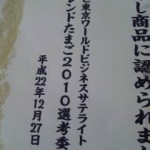 し商品に認められま
東京ワールドビジネスサテライト
ンドたまご2010選考委
平成22年12月27日